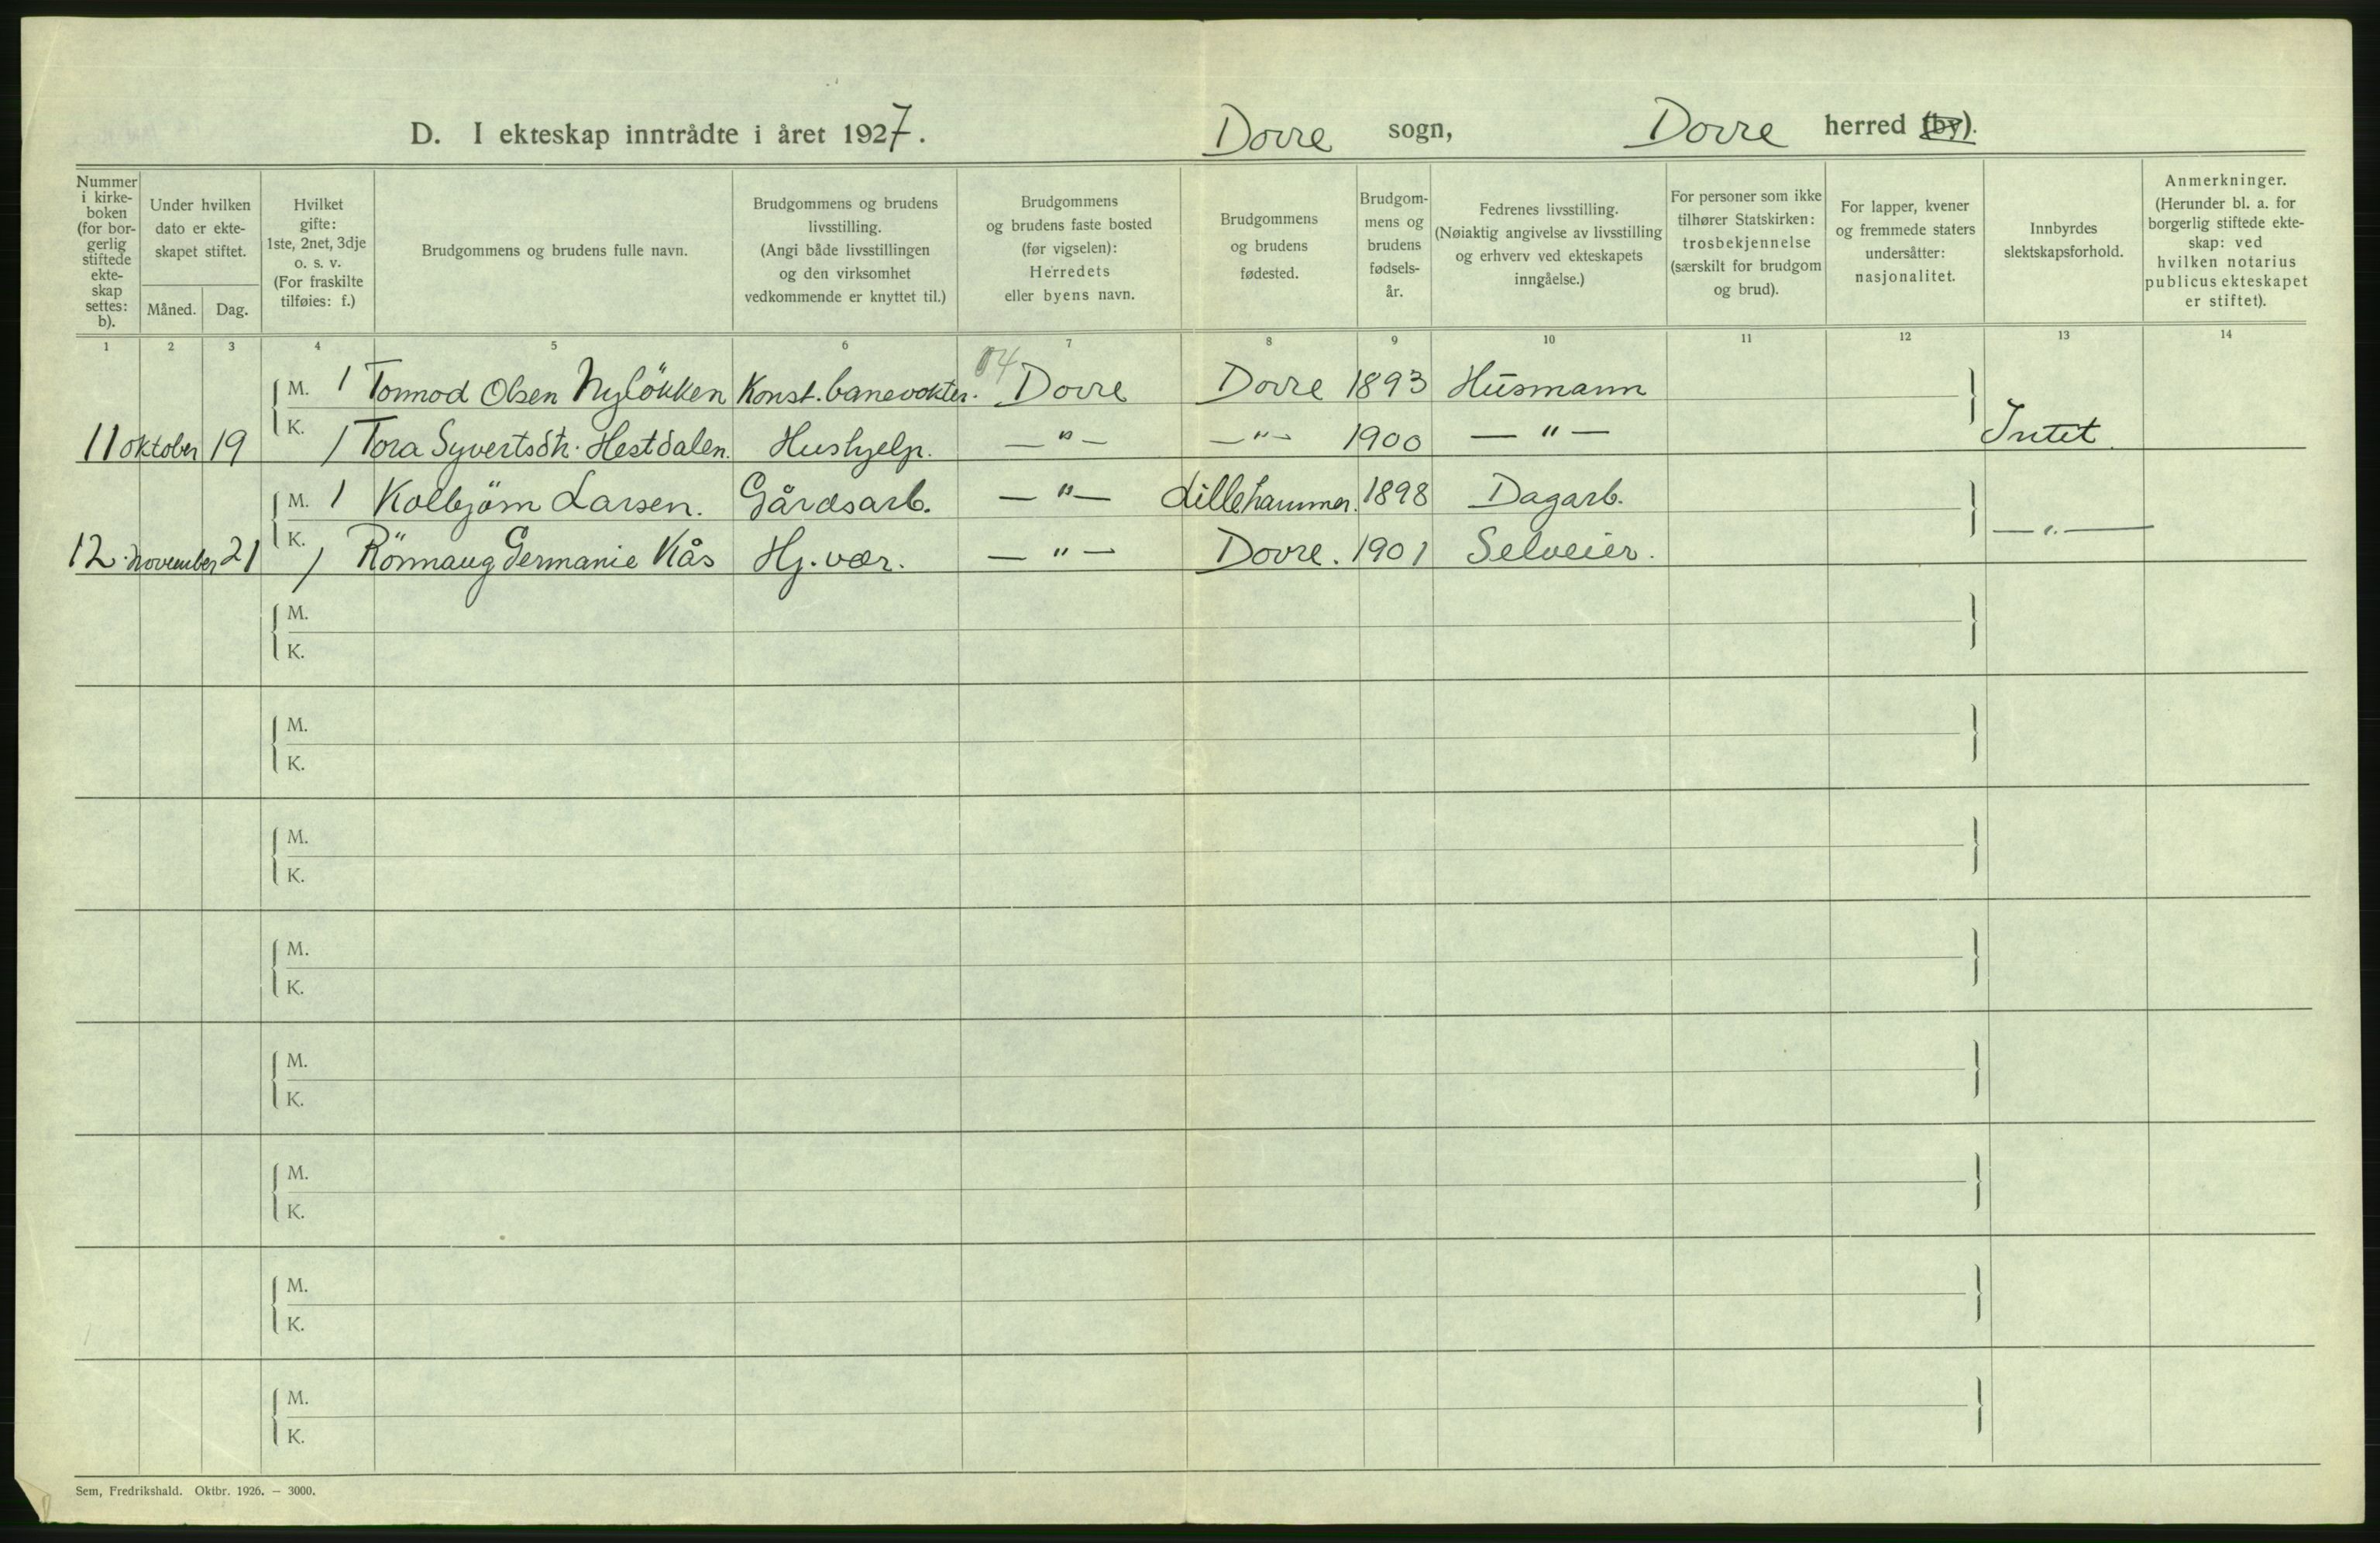 D. I ekteskap inntrådte i året 1927. Dovre sogn, Dovre herred (by).
Nummer i kirke-boken (for bor-gerlig stiftede ekte-skap settes: b).
Under hvilken dato er ekte-skapet stiftet.
Måned. Dag.
Hvilket gifte: 1ste, 2net, 3dje o. s. v. (For fraskilte tilføies: f.)
Brudgommens og brudens fulle navn.
Brudgommens og brudens livsstilling. (Angi både livsstillingen og den virksomhet vedkommende er knyttet til.)
Brudgommens og brudens faste bosted (før vigselen): Herredets eller byens navn.
Brudgommens og brudens fødested.
Brudgom-mens og brudens fødsels-år.
Fedrenes livsstilling. (Nøiaktig angivelse av livsstilling og erhverv ved ekteskapets inngåelse.)
For personer som ikke tilhører Statskirken: trosbekjennelse (særskilt for brudgom og brud).
For lapper, kvener og fremmede staters undersåtter: nasjonalitet.
Innbyrdes slektskapsforhold.
Anmerkninger. (Herunder bl. a. for borgerlig stiftede ekte-skap: ved hvilken notarius publicus ekteskapet er stiftet).
1 2 3 4 5 6 7 8 9 10 11 12 13 14
04
M. 1 Tormod Olsen Nyløkken Konst. banevokter. Dovre Dovre 1893 Husmann
11 oktober 19 K. 1 Tora Syvertsdtr. Hestdalen. Hushjelp. —"— —"— 1900 —"— Intet.
M. 1 Kolbjørn Larsen. Gårdsarb. —"— Lillehammer. 1898 Dagarb.
12. november 21 K. 1 Rönnaug Germanie Kås Hj. vær. —"— Dovre. 1901 Selveier. —"—
M.
K.
M.
K.
M.
K.
M.
K.
M.
K.
M.
K.
M.
K.
M.
K.
Sem, Fredrikshald. Oktbr. 1926. — 3000.